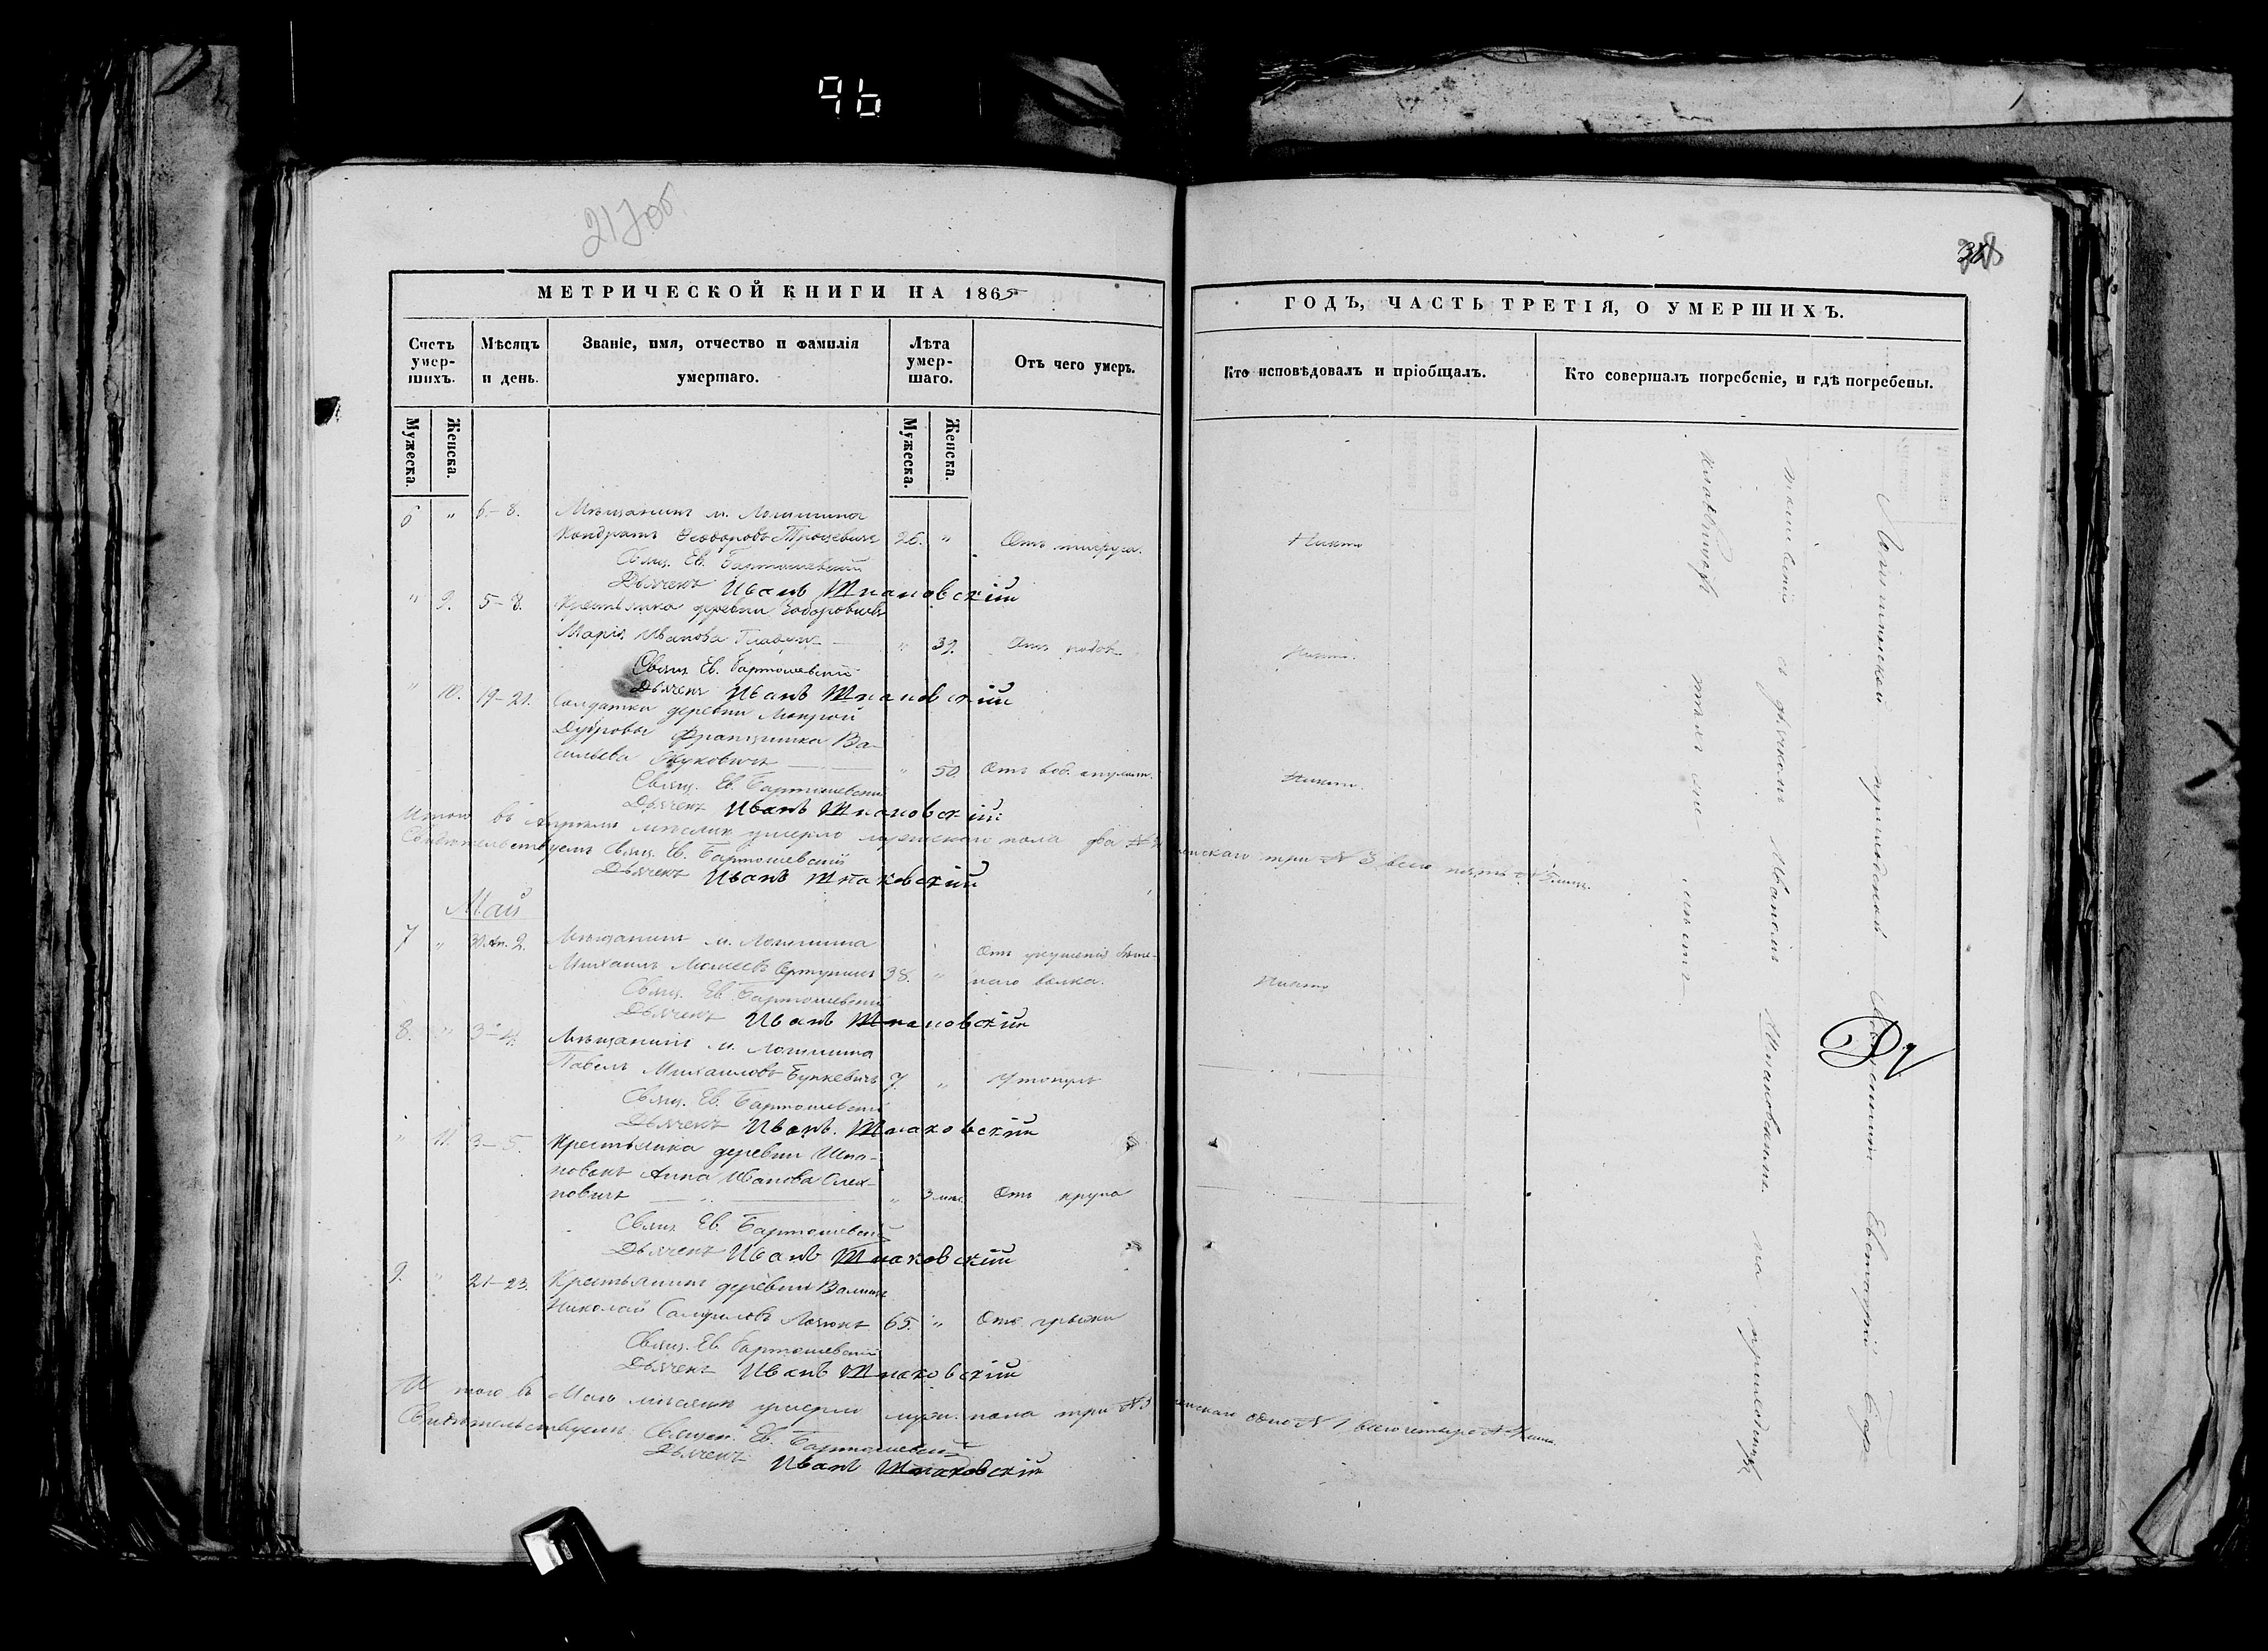 96
217об.
МЕТРИЧЕСКОЙ КНИГИ НА 1865
Счетъ умер-шихъ.
Мѣсяцъ и день.
Званіе, имя, отчество и фамилія умершаго.
Лѣта умер-шаго.
Отъ чего умеръ.
Мужеска.
Женска.
Мужеска.
Женска.
6 " 6–8. Мѣщанинъ м. Логишина
Кондратъ Ѳеодоровъ 26. " Отъ тифуса.
Свящ. Ев. Бартошевскій
Дьячекъ Иванъ Шпаковскій
" 9. 5–8. Крестьянка деревни
Марія Иванова " 39. Отъ родовъ
Свящ. Ев. Бартошевскій
Дьячекъ Иванъ Шпаковскій
" 10. 19–21. Солдатка деревни Мокрой
Дубровы Францишка Ва-
сильева Жуковичъ " 50. Отъ
Свящ. Ев. Бартошевскій
Дьячекъ Иванъ Шпаковскій
Итого въ Апрѣлѣ мѣсяцѣ умерло мужескаго пола два № 2 женскаго три № 3 всего пять № 5 лицъ.
Свидѣтельствуемъ Свящ. Ев. Бартошевскій
Дьячекъ Иванъ Шпаковскій
Май
7 " 30. Ап. 2. Мѣщанинъ м. Логишина
Отъ укушенія бѣше-
Михаилъ Моисеевъ 38. " наго волка.
Свящ. Ев. Бартошевскій
Дьячекъ Иванъ Шпаковскій
8. " 3–4. Мѣщанинъ м. Логишина
Павелъ Михаиловъ 7. " Утонулъ
Свящ. Ев. Бартошевскій
Дьячекъ Иванъ Шпаковскій
" 11. 3–5. Крестьянка деревни
Анна Иванова Олех-
новичъ " 3 мѣс. Отъ крупа
Свящ. Ев. Бартошевскій
Дьячекъ Иванъ Шпаковскій
9. " 21–23. Крестьянинъ деревни
Николай Самуиловъ 65. " Отъ грыжи
Свящ. Ев. Бартошевскій
Дьячекъ Иванъ Шпаковскій
Итого въ Маѣ мѣсяцѣ умерло муж. пола три № 3 женскаго одна № 1 всего четыре № 4 лица.
Свидѣтельствуемъ: Священ. Ев. Бартошевскій
Дьячекъ Иванъ Шпаковскій
ГОДЪ, ЧАСТЬ ТРЕТІЯ, О УМЕРШИХЪ.
Кто исповѣдовалъ и пріобщалъ.
Кто совершалъ погребеніе, и гдѣ погребены.
Никто
Никто.
Никто.
Никто
Логишинской приходской Священникъ Евстафій Бар-
тошевскій съ дьячкомъ Иваномъ Шпаковскимъ на приходскихъ
кладбищахъ